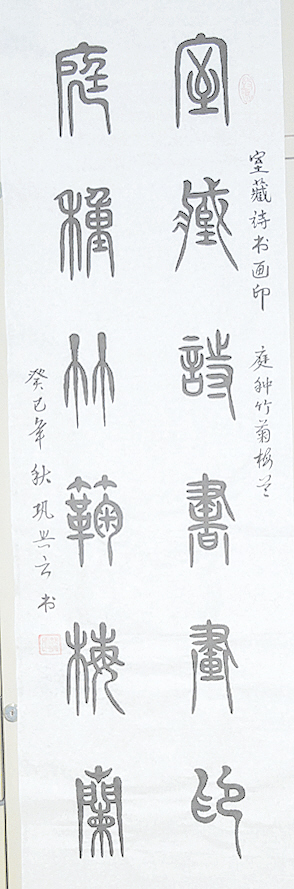 室藏诗书画印 庭种竹菊梅兰
室藏詩書畫印
庭種竹菊梅蘭
癸巳年秋巩兴云书